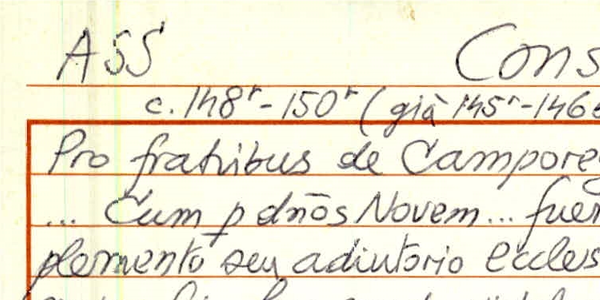 ASS Cons
c. 148r-150r (già 145r-146
Pro fratribus de Campore
... Cum p dnōs Novem... fuer
plemento seu adiutorio eccles